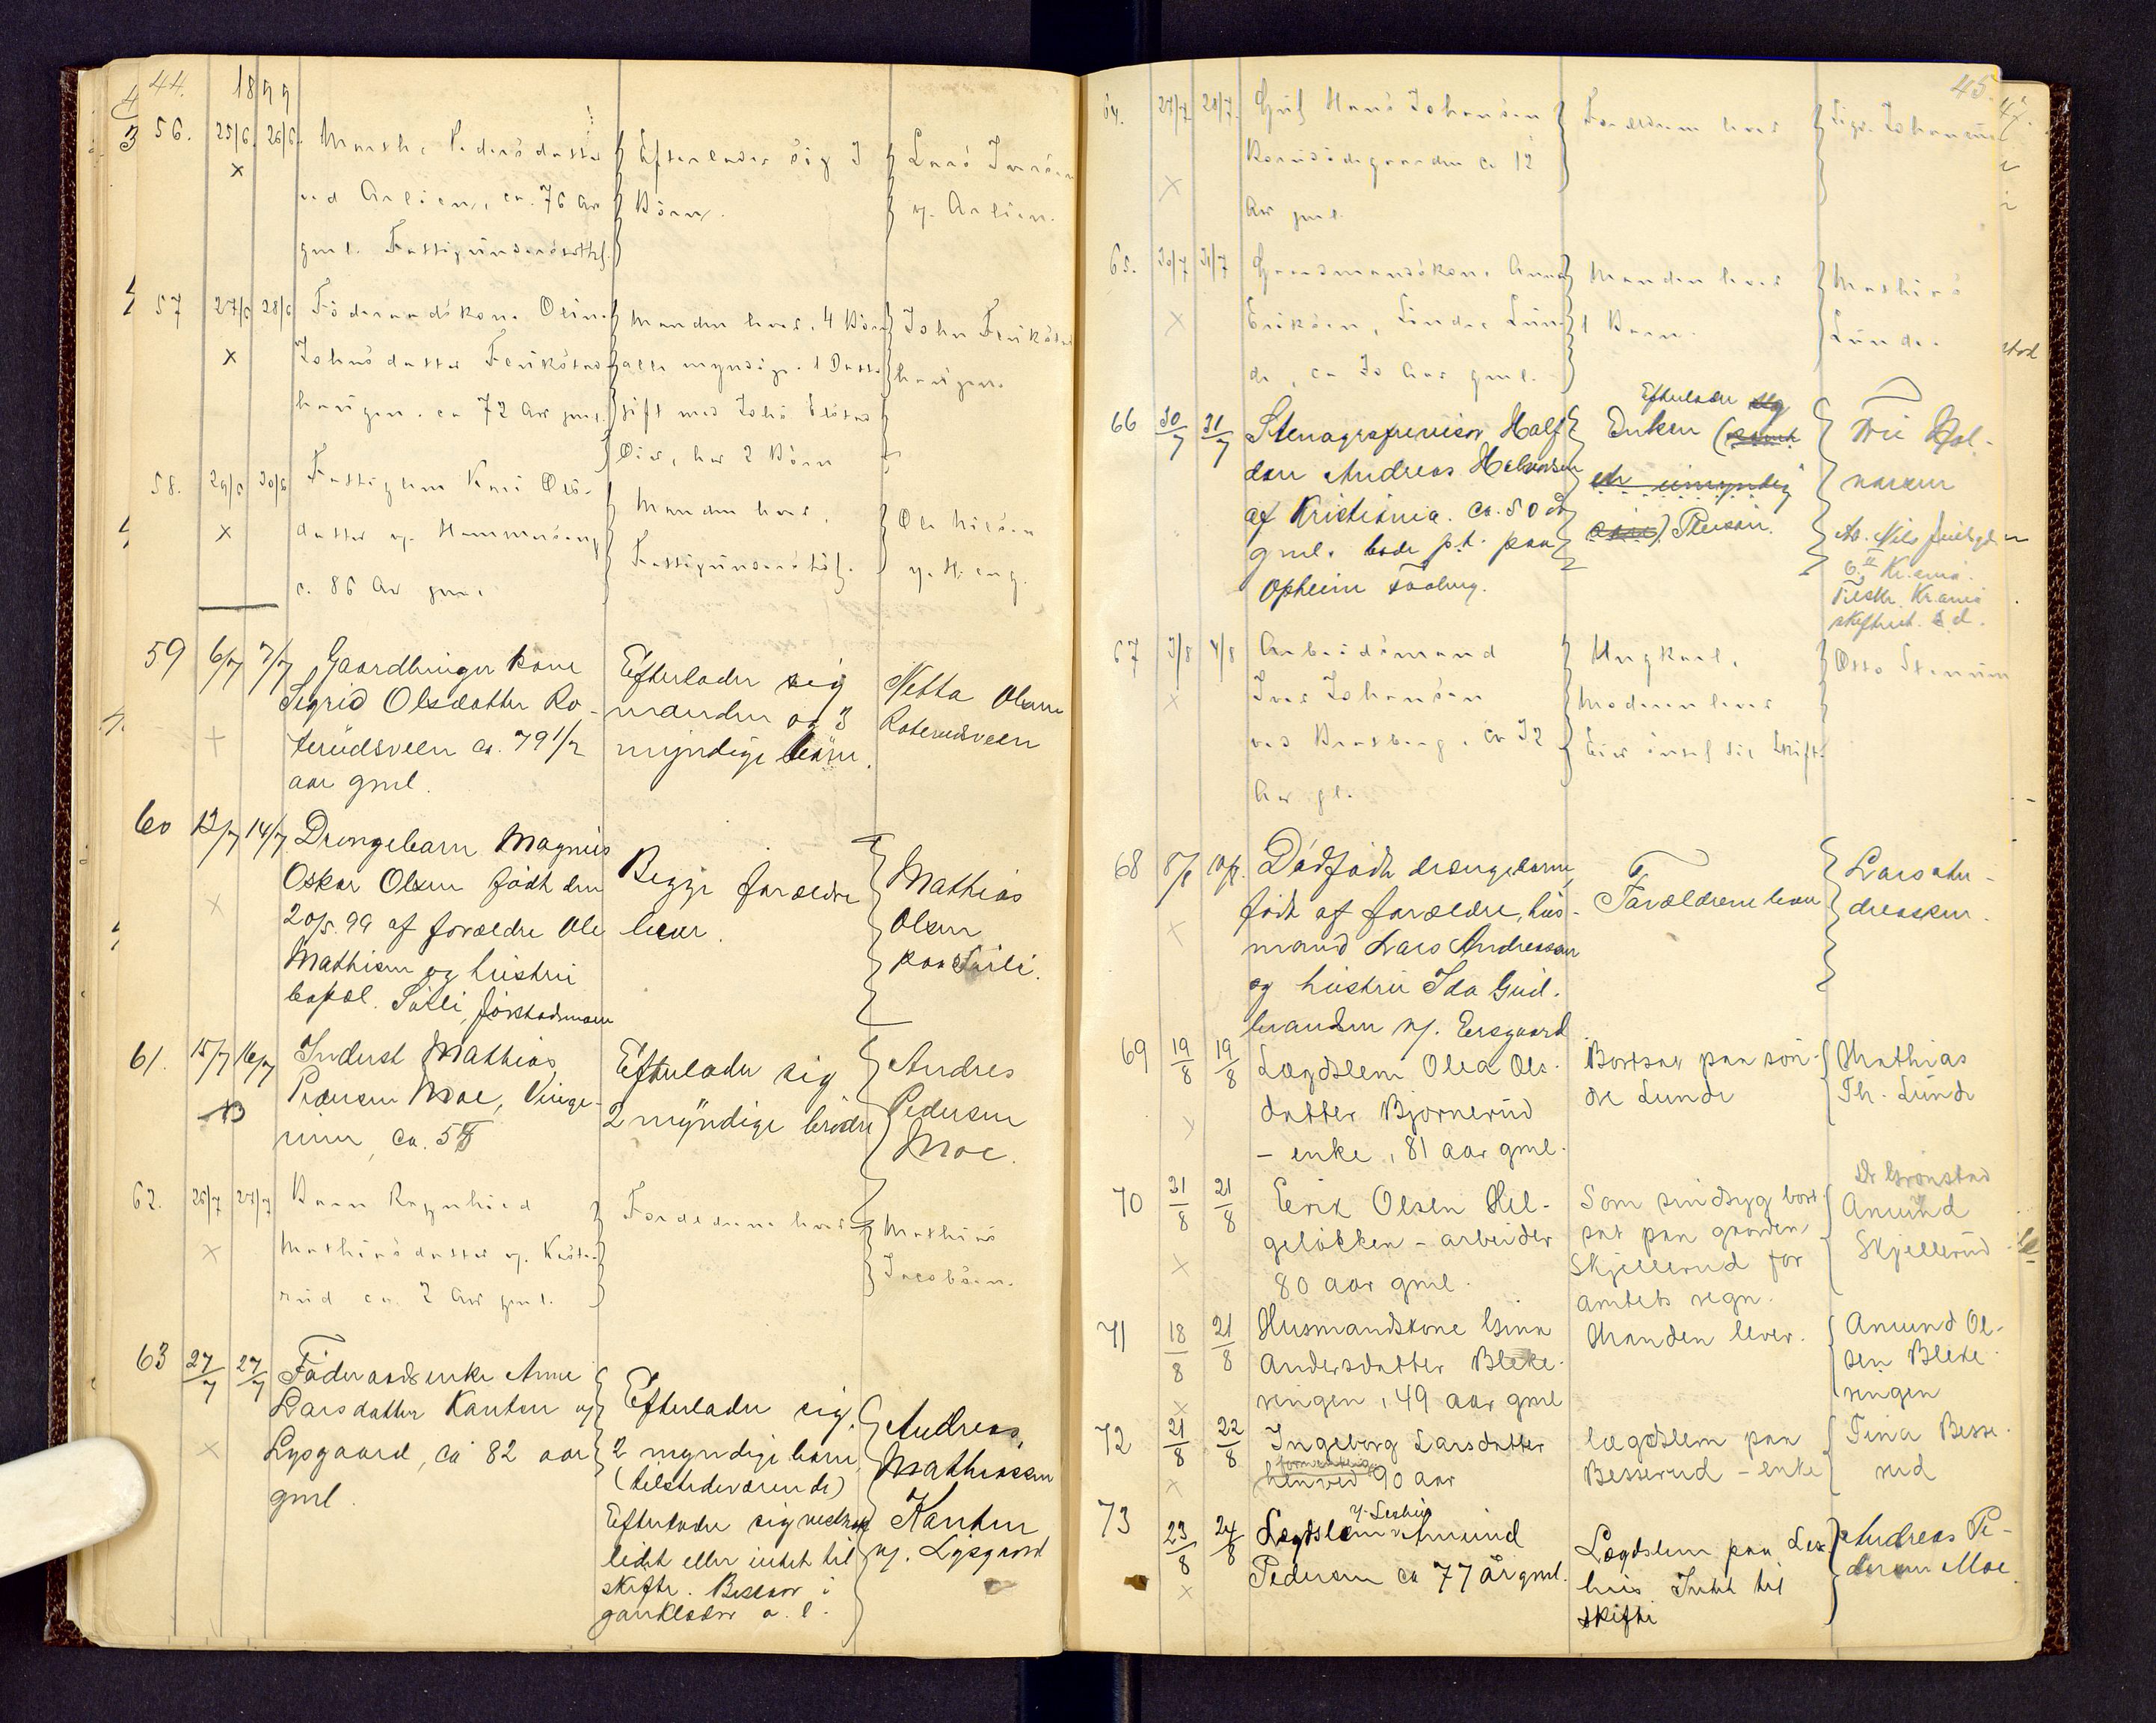 44. 1899
56. 25/6. 26/6. Marthe Pedersdatter
ved Aslien, ca. 76 Aar
gml. Fattigunderstøttes.
Efterlader sig 3
Børn.
Lars Iversen
y. Aslien.
57 27/6 28/6 Føderaadskone
Johnsdatter
haugen. ca 72 Aar gml.
Manden lever, 4 Børn
alle myndige. 1 Datter
gift med Johs
Øier, har 2 Børn
John
haugen.
58. 29/6 30/6 Fattiglem Kari Ols-
datter y. Hammerseng
c. 86 Aar gml.
Manden lever,
Fattigunderstøt.
Ole Nilsen
y. H.eng.
59 6/7 7/7 Gaardbruger kone
Sigrid Olsdatter Ro-
terudsveen ca. 79 1/2
aar gml.
Efterlader sig
manden og 3
myndige børn.
Netta Olsen
Roterudsveen
60 13/7 14/7 Drengebarn Magnus
Oskar Olsen født den
20/5. 99 af forældre Ole
Mathisen og hustru
bopæl. Sørli, Jørstadmoen
Begge forældre
lever.
Mathias
Olsen
paa Sørli.
61. 15/7 16/7 Inderst Mathias
Pedersen Moe, Vinge-
ca. 58
Efterlader sig
2 myndige brødre
Andres
Pedersen
Moe.
62. 26/7 27/7 Barn Ragnhild
Mathisdatter y.
rud ca. 2 Aar gml.
Forældrene lever
Mathias
Jacobsen.
63 27/7 27/7 Føderaadsenke Anne
Larsdatter Kanten y
Lysgaard, ca 82 aar
gml.
Efterlader sig
2 myndige børn,
(tilstedeværende)
Efterlader sig
lidet eller intet til
skifte. Bestaar i
gangklæder o. l.
Andreas
Mathiassen
Kanten
y. Lysgaard
45.
64. 27/7 28/7. Hans Johansen
ca 12
Aar gml.
Forældrene lever
Sigv. Johansen
65. 30/7 31/7 Gaardmandskone Anna
Eriksen, Søndre Lun-
de, ca 30 Aar gml.
Manden lever
1 Barn
Mathias
Lunde.
66 30/7 31/7 Stenografrevisor Half-
dan Andreas Halvorsen
af Kristiania. ca. 50 år
gml. bode p.t. paa
Opheim Faaberg.
Efterlader sig
Enken
Pleiesøn.
Fru Hal-
vorsen
Kr.ania.
Tilskr. Kr.ania
skifteret. s. d.
67 3/8 4/8 Arbeidsmand
Iver Johansen
ved Brusberg, ca 32
Aar gl.
Ungkarl,
Moderen lever
Eier intet til Skift.
Otto Stenium
68 8/8 10/8. Dødfødt drengebarn,
født af forældre, hus-
mand Lars Andreassen
og hustru Ida Gud-
brandsen y. Ersgaard
Forældrene lever
Lars An-
dreassen.
69 19/8 19/8 Lægdslem Olea Ols-
datter Bjørnerud
- enke, 81 aar gml.
Bortsat paa søn-
dre Lunde
Mathias
Th. Lunde
70 21/8 21/8 Erik Olsen Hel-
geløkken - arbeider
80 aar gml.
Som sindsyg bort-
sat paa gaarden
Skjellerud for
amtets regn.
Dr Grønstad
Amund
Skjellerud
71 18/8 21/8 Husmandskone Gina
Andersdatter Bleke-
ringen, 49 aar gml
Manden lever.
Amund Ol-
sen Bleke-
ringen
72 21/8 22/8 Ingeborg Larsdatter
henved 90 aar
lægdslem paa
Besserud - enke
Tina Besse-
rud
73 23/8 24/8 Lægdslem Amund
Pedersen ca 77 år gml.
Lægdslem paa Les-
hus Intet til
skifte
Andreas Pe-
dersen Moe.